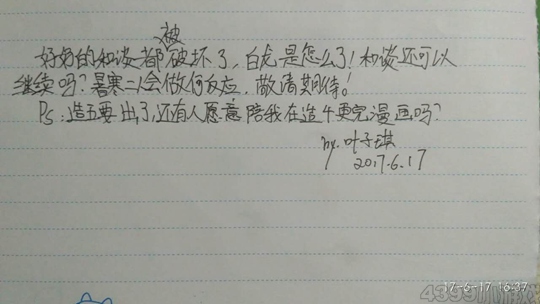 好好的和谈都被破坏了，白龙是怎么了！和谈还可以
继续吗？暑寒二人会做何反应，敬请期待！
Ps：造五要出了，还有人愿意陪我在造牛更完漫画吗？
by.叶子琪
2017.6.17
17-6-17 16:37
4399小游戏